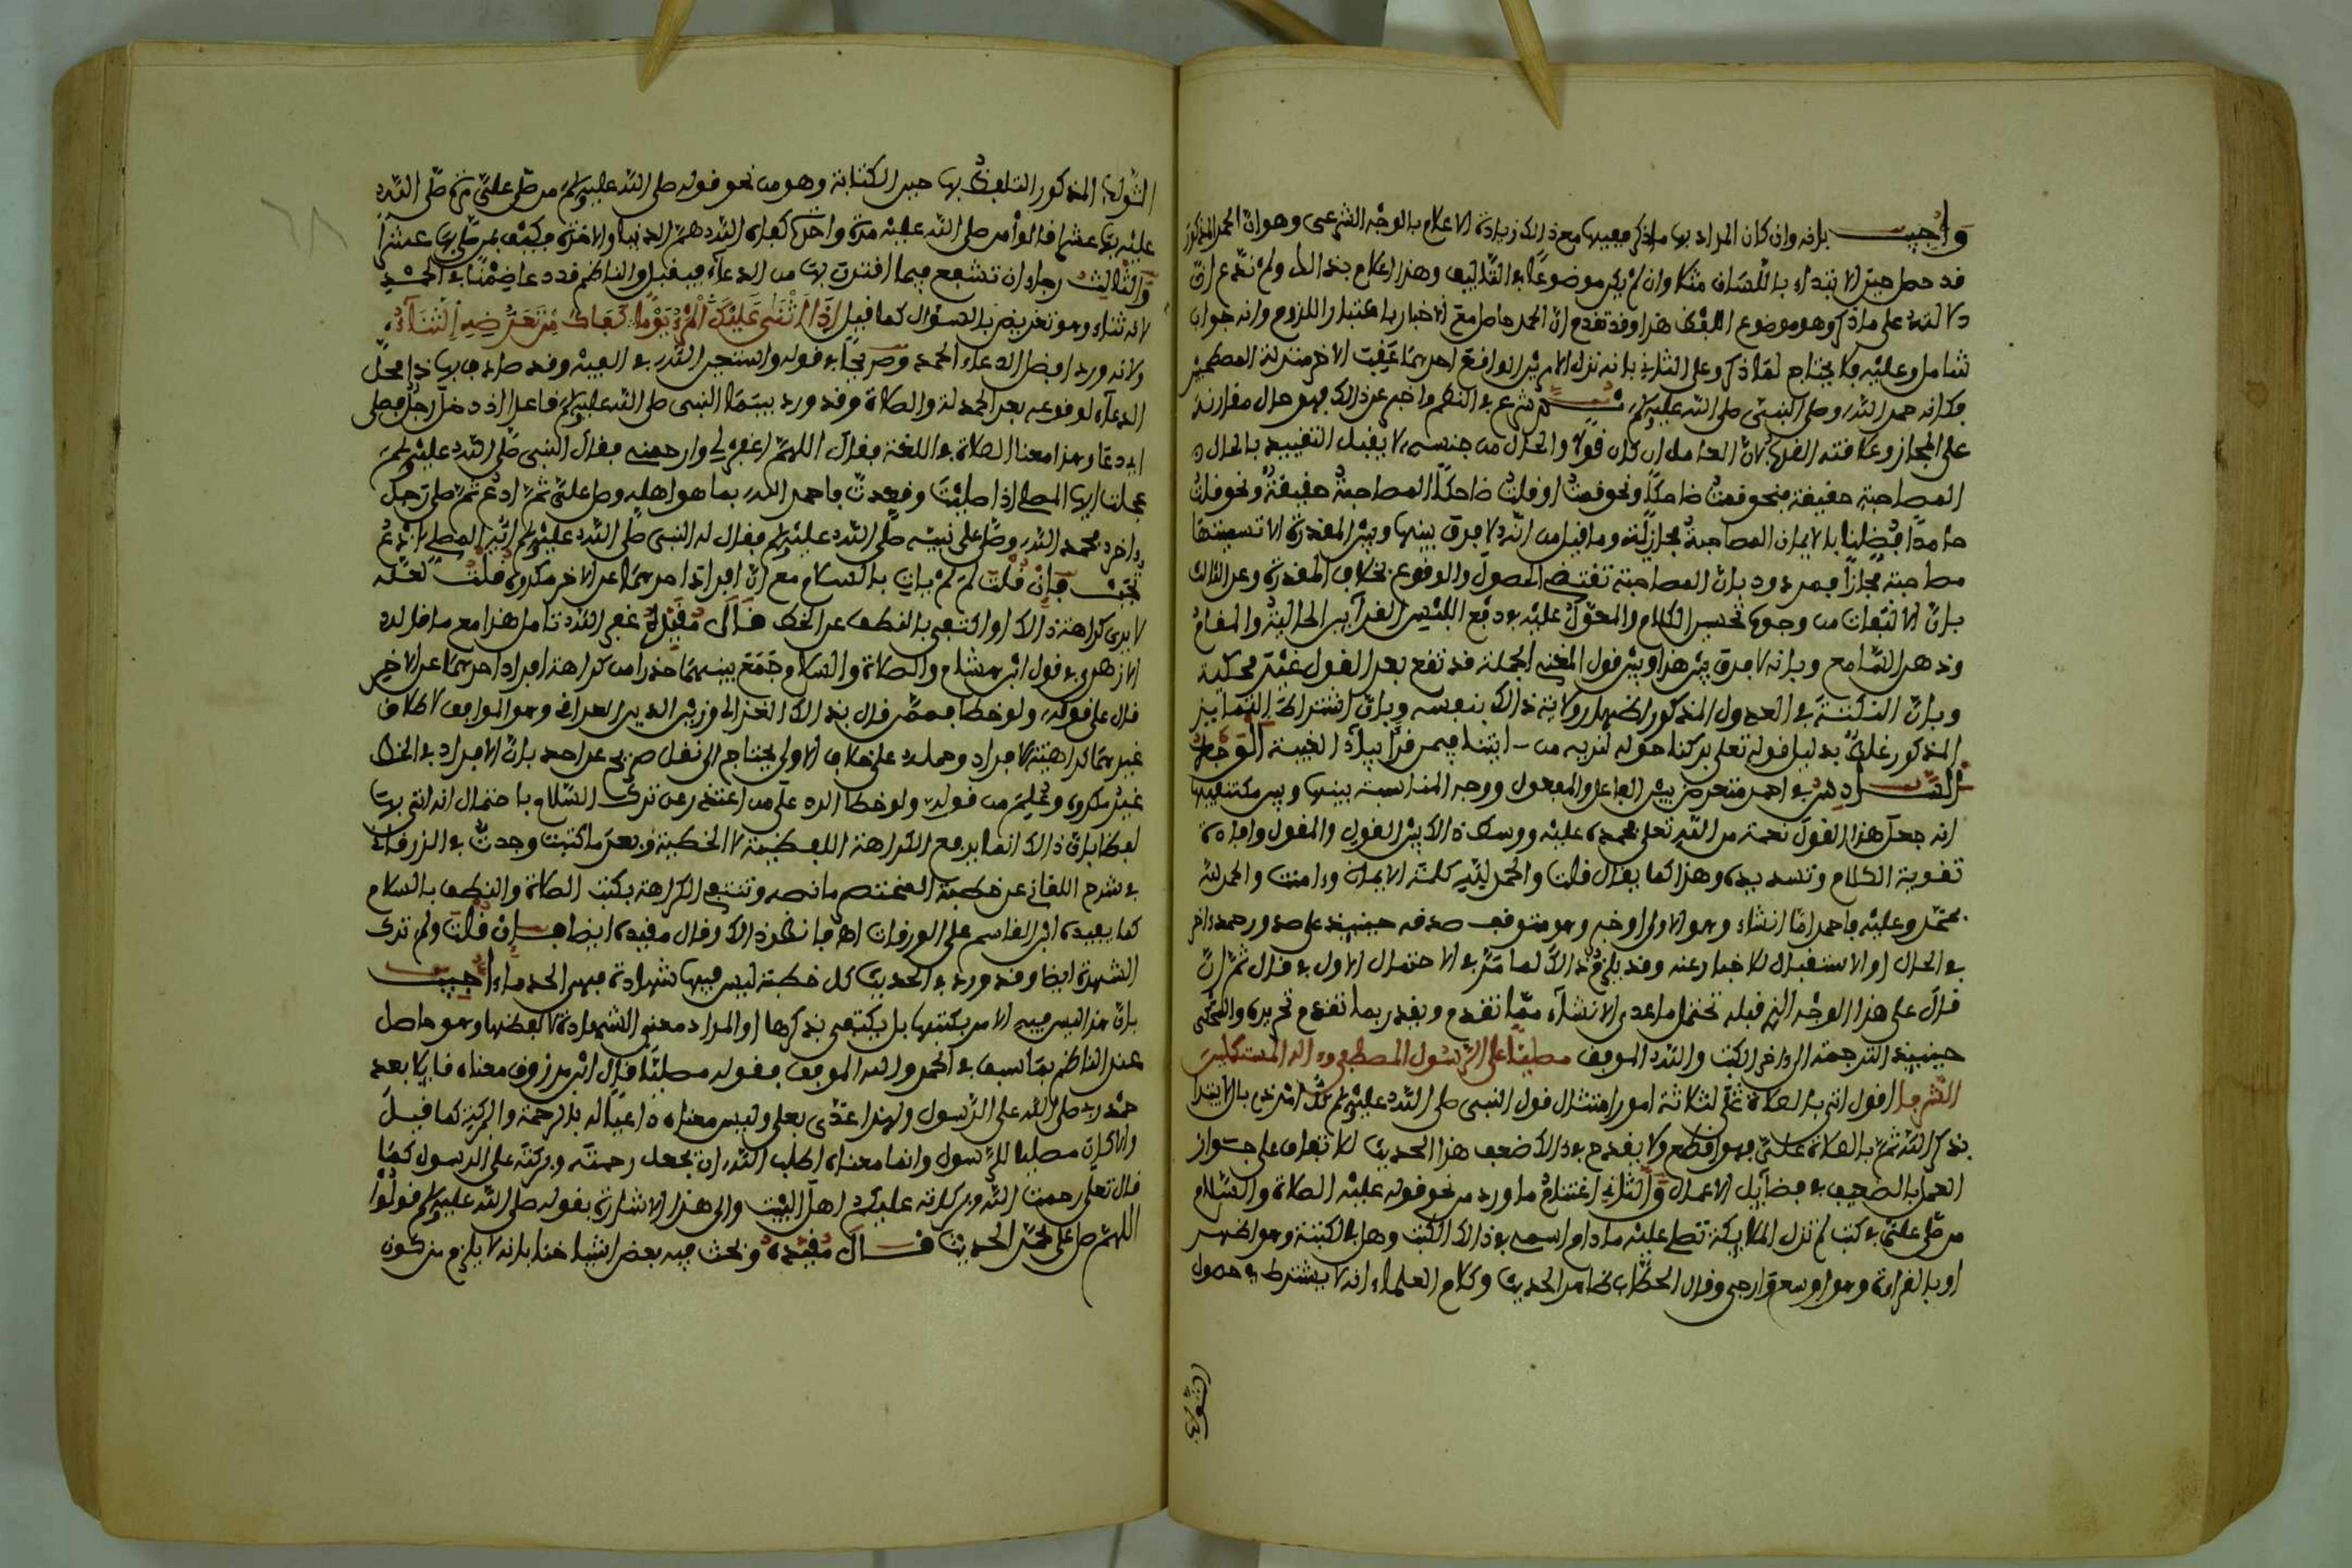 وأجيب بانه وان كان المراد بها ماذكر ففيها مع ذالك زيادة الاعلام بالوجه الشرعى وهو ان الحمد المذكور
قد حصل حين الابتداء باللسان مثلا وان لم يكن موضوعا في التأليف وهذا اعلام بذالك ولم ندّع ان
دلالته على ماذكر وهو موضوع اللفظ هذا وقد تقدم ان الحمد حاصل مع الاخبار باعتبار اللزوم وانه جواب
شامل وعليه فلا يحتاج لما ذكر وعلى الثاني بانه نزل الامرين الواقع احدهما عقب الاخر منزلة المصطحبين
فكانه حمد الله وصلى النبى صلى الله عليه وسلم ثم شرع في النظم واخبر عن ذالك فهو حال مقارنة
على المجاز وعلاقته القرب لان العامل ان كان قولا والحال من جنسه لا يقبل التقييد بالحال
المصاحبة حقيقة فنحو قمت ضاحكا ونحو قمت او قلت ضاحكا المصاحبة حقيقة ونحو قلت
حامدا فضلنا بالايمان المصاحبة مجازية وما قيل من انه لا فرق بينها وبين المقدرة الا تسميتها
مصاحبة مجازا فمردود بان المصاحبة تقتضى الحصول والوقوع بخلاف المقدرة وعن الثالث
بان الالتفات من وجوه تحسين الكلام والمعوّل عليه في دفع اللبس القرآين الحالية والمقام
وذهن السامع وبانه لا فرق بين هذا وبين قول المغنى الجملة قد تقع بعد القول غير محكية
وبان النكتة في العدول المذكور اظهار ولاية ذالك بنفسه وبان اشتراط التمايز
المذكور غلب بدليل قوله تعلى بركنا حوله لنريه من ايتنا فيمن قرأ بياء الغيبة الوجه
السادس في احمد متعرض بين الفاعل والمفعول ووجه المناسبة بينها وبين مكتنفيها
انه جعل هذا القول نعمة من الله تعلى فحمده عليه ووسط ذالك بين القول والمقول وافادة
تقوية الكلام وتسديده وهذا كما يقال قلت والحمد لله كلمة الايمان وءامنت والحمد لله
بمحمد وعليه فاحمد اما انشاء وهو الاولى او خبر وهو متوقف صدقه حينيذ على صدور حمد ءاخر
في الحال او الاستقبال للاخبار عنه وقد يلزم ذالك لما مرّ في الاحتمال الاول في قال ثم ان
قال على هذا الوجه الذي قبله تحتمل ما عدى الانشاء مما تقدم ويقدر بما تقدم تحريره والمحكى
حينيذ الترجمة الى ءاخر الكتاب والله الموفق مصليا على الرسول المصطفى وءاله المستكملين
الشرفا اقول اتى بالصلاة على ثلاثة امور امتثال قول النبى صلى الله عليه وسلم كل امر ذى بال لا يبدا
بذكر الله ثم بالصلاة على فهو اقطع ولا يقدح في ذالك ضعف هذا الحديث للاتفاق على جواز
العمل بالضعيف في فضآيل الاعمال والثانى اغتنام ما ورد من نحو قوله عليه الصلاة والسلام
من صلى على في كتاب لم تزل الملايكة تصلى عليه ما دام اسمى في ذالك الكتب وهل بالكتبة وهو اظهر
او بالقراءة وهو اوسع وارجى وقال الحطاب ظاهر الحديث وكلام العلماء انه لا يشترط في حصول
الثواب المذكور التلفظ بها حين الكتابة وهو من نحو قوله صلى الله عليه وسلم من صلى على مرة صلى الله
عليه بها عشرا قالوا من صلى الله عليه مرة واحدة كفاه الله هم الدنيا والاخرة فكيف بمن صلى بها عشرا
والثالث رجاء ان تشفع فيما اقترن بها من الدعاء فيقبل والناظم قد دعا ضمنا في الحمد
لانه ثناء وهو تعريض بالسؤال كما قيل إذا أثنى عليك المرء يوما كفاك من تعرضه الثناء
ولانه ورد افضل الدعاء الحمد وصريحا في قوله واستعين الله في الفيه وقد صادف بها ذا محل
الدعاء لوقوعه بعد الحمدلة والصلاة وقد ورد بينما النبى صلى الله عليه وسلم قاعدا اذ دخل رجل فصلى
اى دعا وهذا معنا الصلاة في اللغة فقال اللهم اغفر لى وارحمنى فقال النبى صلى الله عليه وسلم
عجلت ايها المصلى اذا صليت وقعدت فاحمد الله بما هو اهله وصل على ثم ادع ثم صلى رجل
ءاخر فحمد الله وصلى على نبيه صلى الله عليه وسلم فقال له النبى صلى الله عليه وسلم ايها المصلى ادع
تجب فإن قلت لم لم يات بالسلام مع ان افراد احدهما عن الاخر مكروه قلت لعله
لا يرى كراهة ذالك او اكتفى بالنطق عن الخط قال مقيده غفر الله تامل هذا مع ما قاله
الازهرى في قول ابن هشام والصلاة والسلام وجمع بينهما حذرا من كراهة افراد احدهما عن الاخر
قال على قوله ولو خطا فممن قال بذالك الغزالى وزين الدين العراقى وهو الموافق لاطلاق
غيرهما كراهية الافراد وحمله على خلاف الاولى يحتاج الى نقل صريح عن احد بان الافراد في الخط
غير مكروه وعلم من قوله ولو خطا الرد على من اعتذر عن ترك السلام باحتمال انه اتى بها
لفظا بان ذالك انما يرفع الكراهة اللفظية لا الخطية وبعد ما كتبت وجدت في الزرقانى
في شرح اللقانى عن خطبة المختصر ما نصه وتنتفى الكراهة بكتب الصلاة والنطق بالسلام
كما يفيده ابن القاسم على الورقات اهـ فانظر ذالك وقال مقيده ايضا فإن قلت ولم ترك
الشهدة ايضا وقد ورد في الحديث كل خطبة ليس فيها شهادة فهى كاليد الجذماء اجيب
بان هذا ليس فيه الامر بكتبها بل يكتفى بذكرها او المراد معنى الشهادة لا لفظها وهو حاصل
عند الناظم بما سبق في الحمد والله الموفق فقوله مصليا قال ابن مرزوق معناه قايلا بعد
حمد ربه صلى الله على الرسول ولهذا عدى بعلى وليس معناه داعيا له بالرحمة والبركة كما قيل
والا كان مصليا للرسول وانما معناه اطلب الله ان يجعل رحمته وبركته على الرسول كما
قال تعلى رحمت الله وبركاته عليكم اهل البيت والى هذا الاشارة بقوله صلى الله عليه وسلم قولوا
اللهم صل على محمد الحديث قال مقيده وبحث فيه بعض اشياخنا بانه لا يلزم من كون